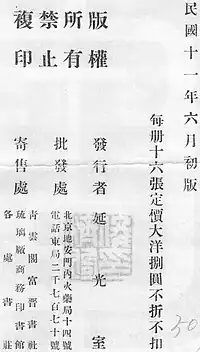 民國十一年六月初版
每册十六張定價大洋捌圓不折不扣
版權所有
禁止複印
發行者 延光室
北京地安門內火藥局十四號
電話東局二千七百七十號
批發處
寄售處
青雲閣富晉書社
琉璃廠商務印書館
各處書莊
50